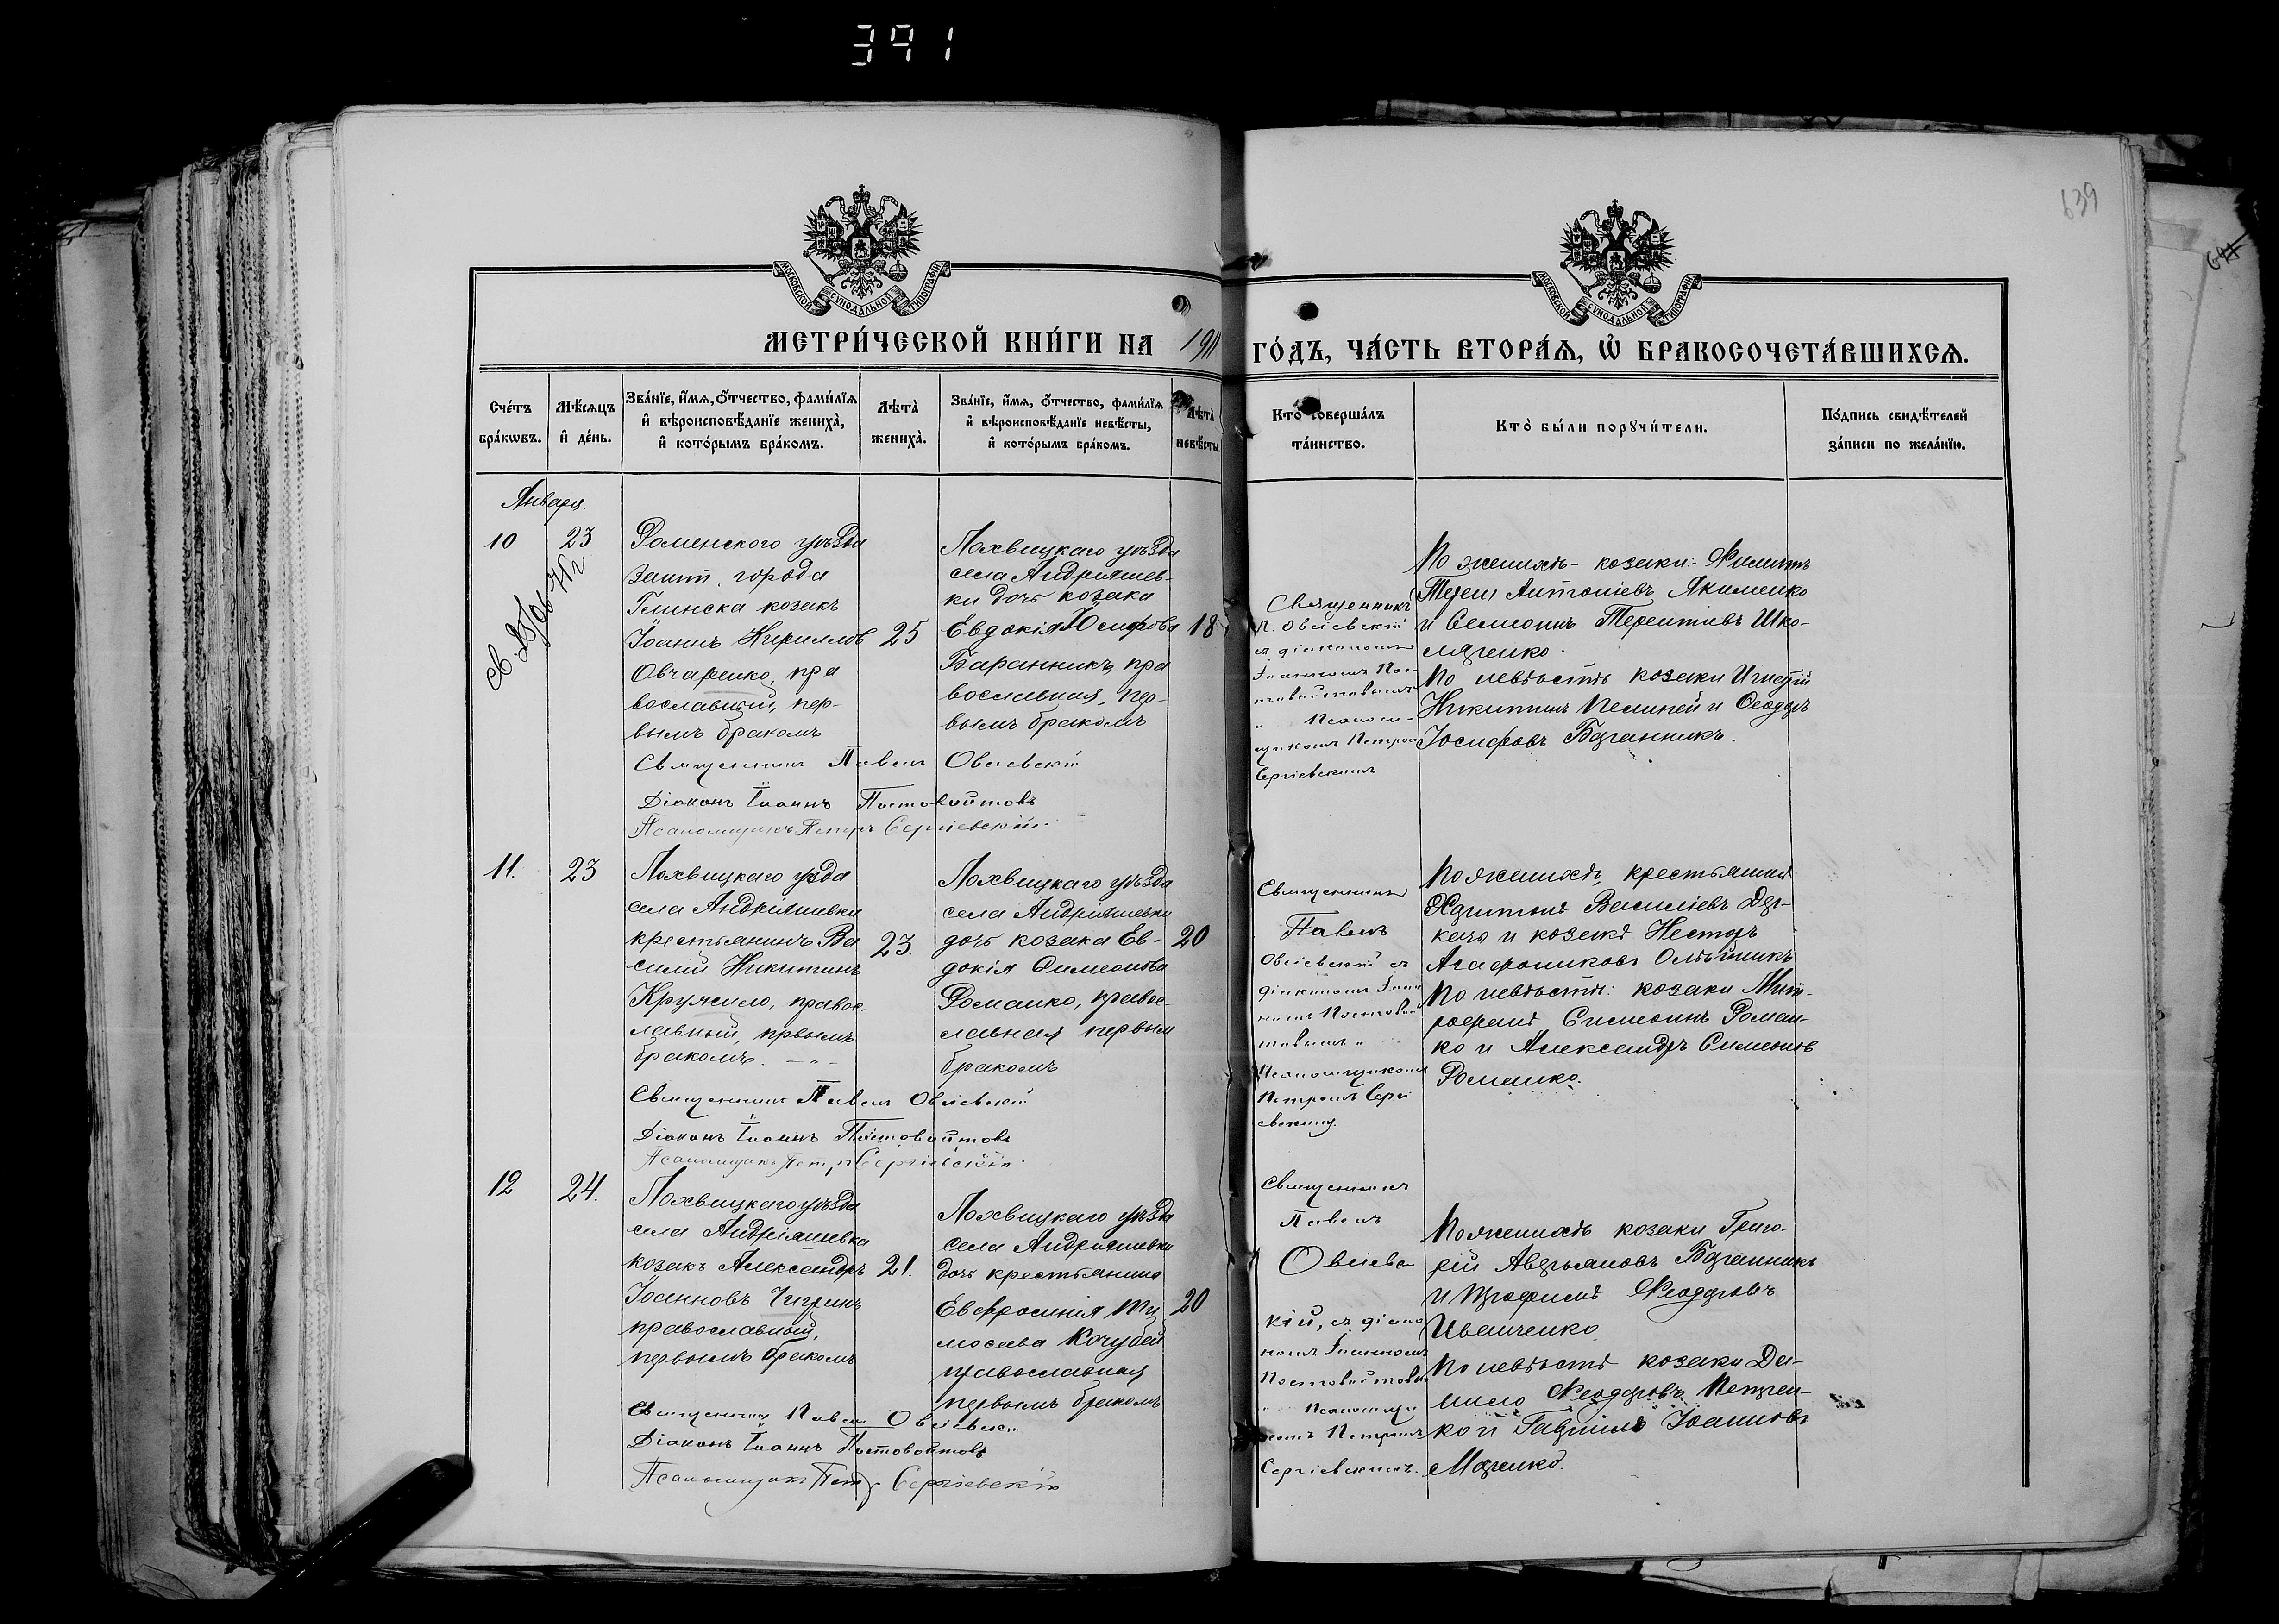 391
639
МОСКОВСКОЙ СѴНОДАЛЬНОЙ ТИПОГРАФІИ
МОСКОВСКОЙ СѴНОДАЛЬНОЙ ТИПОГРАФІИ
МЕТРИ́ЧЕСКОЙ КНИ́ГИ НА 1911 ГО́ДЪ, ЧА́СТЬ ВТОРА́Я, Ѡ҆ БРАКОСОЧЕТА́ВШИХСѦ.
Сче́тъ бра́кѡвъ.
Мѣ́сяцъ и҆ де́нь.
Зва́нїе, и҆́мя, ѻ҆́тчество, фами́лїя и҆ вѣроисповѣ́данїе жениха̀, и҆ кото́рымъ бра́комъ.
Лѣта̀ жениха̀.
Зва́нїе, и҆́мя, ѻ҆́тчество, фами́лїя и҆ вѣроисповѣ́данїе невѣ́сты, и҆ кото́рымъ бра́комъ.
Лѣта̀ невѣ́сты
Кто̀ соверша́лъ та́инство.
Кто̀ бы́ли порꙋчи́тели.
По́дпись свидѣ́телей за́писи по жела́нїю.
Января.
10
23
Роменского уѣзда
зашт. города
Глинска козакъ
Іоаннъ Кириллов
Овчаренко, пра
вославный, пер-
вымъ бракомъ
25
Лохвицкаго уѣзда
села Андріяшев-
ки дочь козака
Евдокія Іосифова
Баранникъ, пра
вославная, пер-
вымъ бракомъ
18
Священникъ
П. Овсіевскій
съ діакономъ
Іоанномъ Пос-
товойтовымъ
и Псаломщ-
щикомъ Петромъ
Сергіевскимъ
По женихѣ - козаки: Филиппъ
Антоніевъ Якименко
и Семіонъ Терентіевъ Шко-
лярченко.
По невѣстѣ козаки Игнатій
Никитинъ и Ѳеодоръ
Іосифовъ Баранникъ.
Священникъ Павелъ Овсіевскій
Діаконъ Іоаннъ Постовойтовъ
Псаломщикъ Петръ Сергіевскій.
11.
23
Лохвицкаго уѣзда
села Андріяшевки
крестьянинъ Ва
силій Никитинъ
Кружило, правос-
лавный, первымъ
бракомъ.
23.
Лохвицкаго уѣзда
села Андріяшевки
дочь козака Ев-
докія Симеонова
Романко, правос-
лавная первым
бракомъ
20
Священникъ
Павелъ
Овсіевскій съ
діакономъ Іоан
номъ Постовой
товымъ и
Псаломщикомъ
Петромъ Сергі
евскимъ.
По женихѣ, крестьянинъ
Харитонъ Василіевъ Дер-
качъ и козакъ Несторъ
Агафониковъ Олѣйникъ
По невѣстѣ: козаки Мит-
рофанъ Симеонъ Роман-
ко и Александръ Симеонов
Романко.
Священникъ Павелъ Овсіевскій
Діаконъ Іоаннъ Постовойтовъ
Псаломщикъ Петръ Сергіевскій.
12
24.
Лохвицкаго уѣзда
села Андріяшевки
козакъ Александръ
Іоанновъ Чигринъ
православный,
первымъ бракомъ
21.
Лохвицкаго уѣзда
села Андріяшевки
дочь крестьянина
Евфросинія Ти
моѳеева Кочубей
православная
первымъ бракомъ
20
Священникъ
Павелъ
Овсіевс
кій, съ діако
номъ Іоанномъ
Постовойтовым
и Псаломщи
комъ Петромъ
Сергіевскимъ.
По женихѣ козаки Григо-
рій Авдріановъ Баранникъ
и Трофимъ Ѳеодоровъ
Иванченко
По невѣстѣ козаки Да-
нило Ѳеодоровъ Петрен-
ко и Гавріилъ Іоанновъ
Маренко.
Священникъ Павелъ Овсіевскій
Діаконъ Іоаннъ Постовойтовъ
Псаломщикъ Петръ Сергіевскій